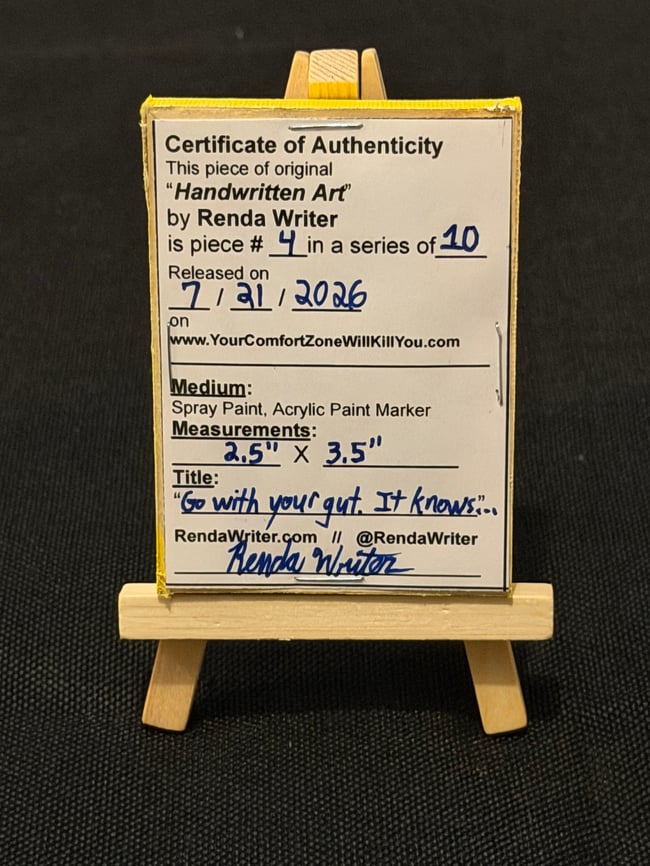 Certificate of Authenticity
This piece of original
"Handwritten Art"
by Renda Writer
is piece # 4 in a series of 10
Released on
7 / 21 / 2026
on
www.YourComfortZoneWillKillYou.com
Medium:
Spray Paint, Acrylic Paint Marker
Measurements:
2.5" X 3.5"
Title:
"Go with your gut. It knows"...
RendaWriter.com // @RendaWriter
Renda Writer